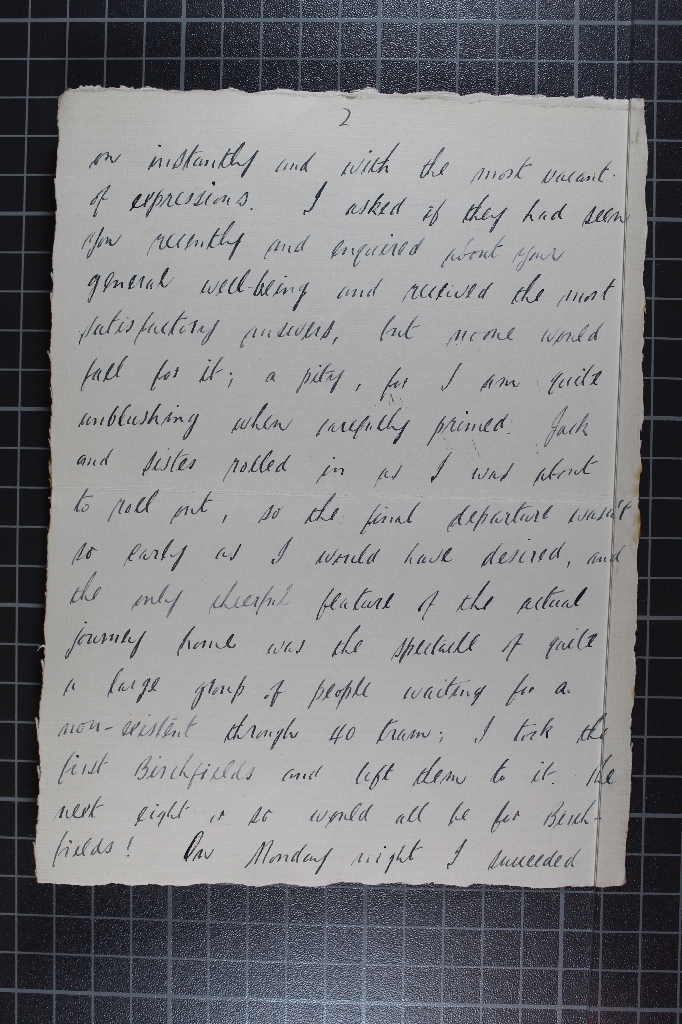 2
on instantly and with the most vacant
of expressions. I asked if they had seen
you recently and enquired about your
general well-being and received the most
satisfactory answers, but noone would
fall for it; a pity, for I am quite
unblushing when carefully primed. Jack
and sister rolled in as I was about
to roll out, so the final departure wasn't
so early as I would have desired, and
the only cheerful feature of the actual
journey home was the spectacle of quite
a large group of people waiting for a
non-existent through 40 tram; I took the
first Birchfields and left them to it. The
next eight or so would all be for Birch-
fields! On Monday night I succeeded